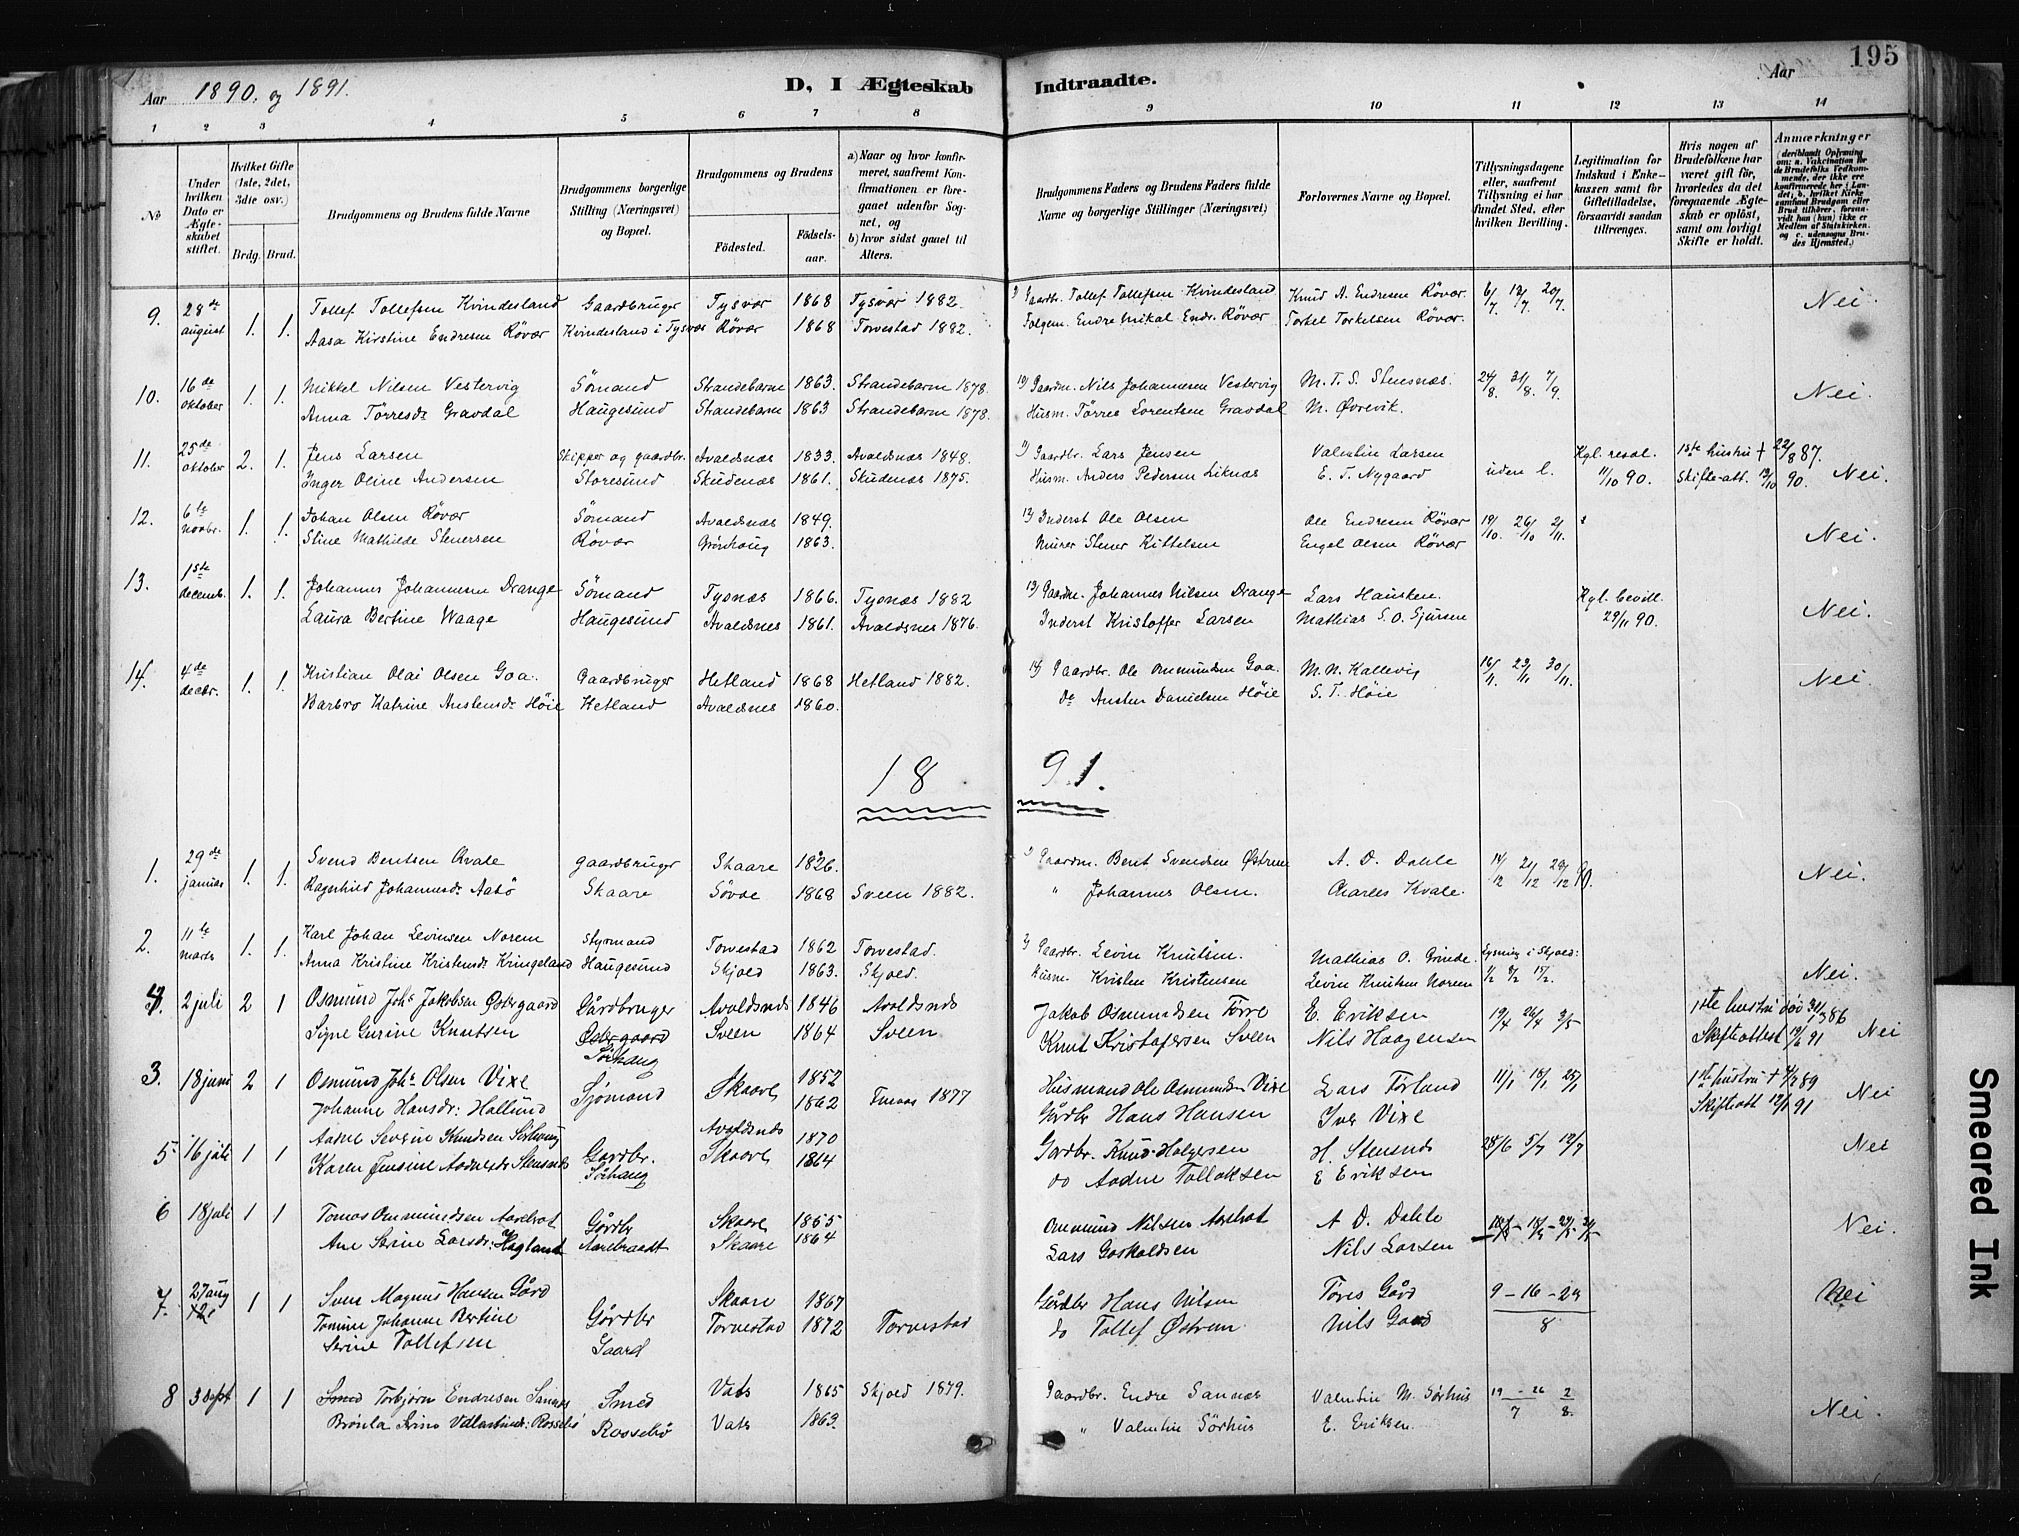 195
Aar 1890. og 1891.
D, I Ægteskab Indtraadte.
Aar
1 2 3 4 5 6 7 8 9 10 11 12 13 14
No
Under hvilken Dato er Ægteskabet stiftet.
Hvilket Gifte (1ste, 2det, 3die osv.)
Brdg. Brud.
Brudgommens og Brudens fulde Navne
Brudgommens borgerlige Stilling (Næringsvei) og Bopæl.
Brudgommens og Brudens
Fødested. Fødselsaar.
a) Naar og hvor konfirmeret, saafremt Konfirmationen er foregaaet udenfor Sognet, og
b) hvor sidst gaaet til Alters.
Brudgommens Faders og Brudens Faders fulde Navne og borgerlige Stillinger (Næringsvei)
Forlovernes Navne og Bopæl.
Tillysningsdagene eller, saafremt Tillysning ei har fundet Sted, efter hvilken Bevilling.
Legitimation for Indskud i Enkekassen samt for Giftetilladelse, forsaavidt saadan tiltrænges.
Hvis nogen af Brudefolkene har været gift før, hvorledes da det foregaaende Ægteskab er opløst, samt om lovligt Skifte er holdt.
Anmærkninger (deriblandt Oplysning om: a. Vaksination for de Brudefolks Vedkommende, der ikke ere konfirmerede her i Landet; b. hvilket Kirkesamfund Brudgom eller Brud tilhører, forsaavidt han (hun) ikke er Medlem af Statskirken. og c. udensogns Brudes Hjemsted.)
9. 28de august 1. 1. Tollef Tollefsen Kvindesland Gaardbruger Tysvær 1868 Tysvær 1882. Gaardbr. Tollef Tollefsen Kvindesland Knud A. Endresen Røvær. 6/7 13/7 20/7. Nei.
Aasa Kirstine Endresen Røvær Kvindesland i Tysvær Røvær 1868 Torvestad 1882. Endre Mikal Endr. Røvær Torkel Torkelsen Røvær.
10. 16de oktober 1. 1. Mikkel Nilsen Vestervig Sømand Strandebarm 1863. Strandebarm 1878. 10) Gaardm. Nils Johannesen Vestervig M. T. S. Stensnæs. 24/8. 31/8. 7/9. Nei.
Anna Tørresdr Gravdal Haugesund Strandebarm 1863 Strandebarm 1878. Husm. Tørres Lorentsen Gravdal M. Øvrevik.
11. 25de oktober 2. 1. Jens Larsen Skipper og gaardbr. Avaldsnæs 1833. Avaldsnæs 1848. 11) Gaardbr. Lars Jensen Valentin Larsen uden l. Kgl. resol. 11/10 90. 1ste hustru + 22/8 87. Nei.
Inger Oline Andersen Storesund Skudenæs 1861. Skudenæs 1875. Husm. Anders Pedersen Liknæs E. T. Nygaard Skifte-att. 13/10 90.
12. 6te novbr. 1. 1. Johan Olsen Røvær Sømand Avaldsnæs 1849. 12) Inderst Ole Olsen Ole Endresen Røvær 19/10. 26/10 2/11. Nei.
Stine Mathilde Stenersen Røvær Grønhaug 1863. Murer Stener Kittelsen Engel Olsen Røvær
13. 1ste decemb. 1. 1. Johannes Johannesen Drange Sømand Tysnæs 1866. Tysnæs 1882 13) Gaardm. Johannes Nilsen Drange Lars Hausken. Kgl. bevill. 29/11 90. Nei.
Laura Bertine Waage Haugesund Avaldsnes 1861. Avaldsnes 1876. Inderst Kristoffer Larsen Mathias S. O. Sjursen
14. 4de decbr. 1. 1. Kristian Olai Olsen Goa. Gaardbruger Hetland 1868 Hetland 1882. 14) Gaardbr. Ole Omundsen Goa. M. N. Kallevig 16/11. 23/11 30/11. Nei
Barbro Katrine Anstensdr Høie Hetland Avaldsnes 1860. Do Ansten Danielsen Høie S. T. Høie
1891.
1. 29de januar 1. 1. Svend Bentsen Kvale gaardbruger Skaare 1826. 1) Gaardm. Bent Svendsen Østrem A. D. Dahle 14/12 21/12 28/12 90. Nei.
Ragnhild Johannesdr Aabø Skaare Søvde 1868 Sveen 1882. " Johannes Olsen. Charles Kvale.
2. 11te marts 1. 1. Karl Johan Levinsen Norem Styrmand Torvestad 1862 Torvestad. 2) Gaardbr. Levin Knutsen Mathias O. Grinde. Lysning i Skjold: Nei.
Anna Kristine Kristensdr Kringeland Haugesund Skjold 1863. Skjold. Husm Kristen Kristensen Levin Knutsen Norem 1/2 8/2 15/2.
4. 2 juli 2 1 Osmund Johs Jakobsen Østergaard Gårdbruger Avaldsnes 1846 Avaldsnes Jakob Osmundsen Førre E. Eriksen 19/4 26/4 3/5 1ste hustru død 31/1 86 Nei
Signe Gurine Knutsen Østergaard Sveen 1864 Sveen Knut Kristofersen Sveen Nils Haagensen Skifteattest 12/6 91
Sørhaug
3. 18 juni 2 1 Osmund Johs Olsen Vixe Sjømand Skaare 1852 Husmand Ole Osmundsen Vixe Lars Førland 11/1 18/1 25/1 1ste hustru + 4/7 89 Nei
Johanne Hansdr: Hallund 1862 1877 Gårdbr Hans Hansen Iver Vixe Skifteatt 12/1 91
5 16 juli 1 1 Aadne Severin Knudsen Sørhaug Gardbr. Avaldsnes 1870 Gardbr. Knud Holgersen H. Stensnes 28/6 5/7 12/7 Nei
Karen Jensine Aadnesdr Stensnes Sørhaug Skaare 1864 do Aadne Tollaksen E Eriksen
6 18 juli 1 1 Tomas Ommundsen Aarebrot Gårdbr Skaare 1855 Ommund Nilsen Aarebrot A D. Dahle Nei.
Ane Serine Larsdr: Hagland Aarebraadt Skaare 1864 Lars Gaskaldsen Nils Larsen
7. 27 aug 1 1 Sven Magnus Hansen Gård Gårdbr Skaare 1867 Gårdbr Hans Nilsen Tøres Gård 9 – 16 – 23 Nei
Tomine Johanne Bertine Gaard Torvestad 1872 Torvestad do Tollef Østrem Nils Gaard 8
Serine Tollefsen
8 3 sept 1 1 Smed Torbjørn Endresen Sannes Smed Vats 1865 Skjold 1879. Gaardbr. Endre Sannæs Valentin M. Sørhus 19 – 26 2 Nei.
Brønla Serine Vallentinsdr: Rossebø Rossebø Vats 1863. " Valentin Sørhus E. Eriksen. 7 8.
Smeared Ink